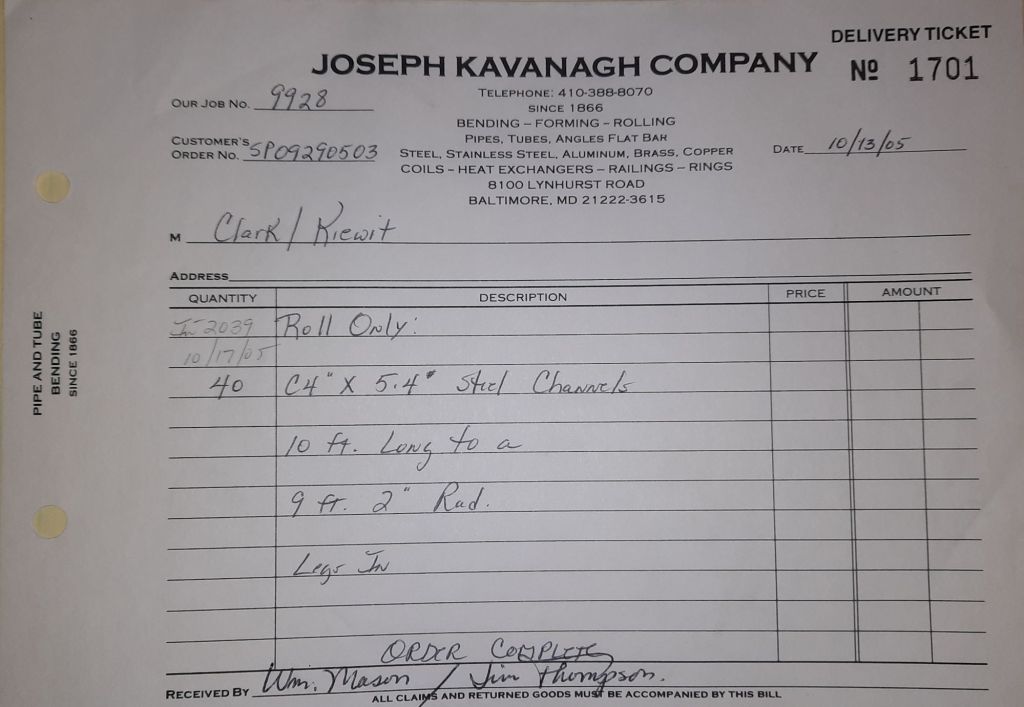 DELIVERY TICKET
JOSEPH KAVANAGH COMPANY
Nº 1701
OUR JOB NO. 9928
TELEPHONE: 410-388-8070
SINCE 1866
BENDING – FORMING – ROLLING
PIPES, TUBES, ANGLES FLAT BAR
CUSTOMER'S
ORDER NO. SP09290503
STEEL, STAINLESS STEEL, ALUMINUM, BRASS, COPPER
DATE 10/13/05
COILS – HEAT EXCHANGERS – RAILINGS – RINGS
8100 LYNHURST ROAD
BALTIMORE, MD 21222-3615
M Clark / Kiewit
ADDRESS
QUANTITY DESCRIPTION PRICE AMOUNT
In 2039 Roll Only:
10/17/05
40 C4" X 5.4# Steel Channels
10 ft. Long to a
9 ft. 2" Rad.
Legs In
ORDER COMPLETE
RECEIVED BY Wm. Mason / Jim Thompson.
ALL CLAIMS AND RETURNED GOODS MUST BE ACCOMPANIED BY THIS BILL
PIPE AND TUBE
BENDING
SINCE 1866